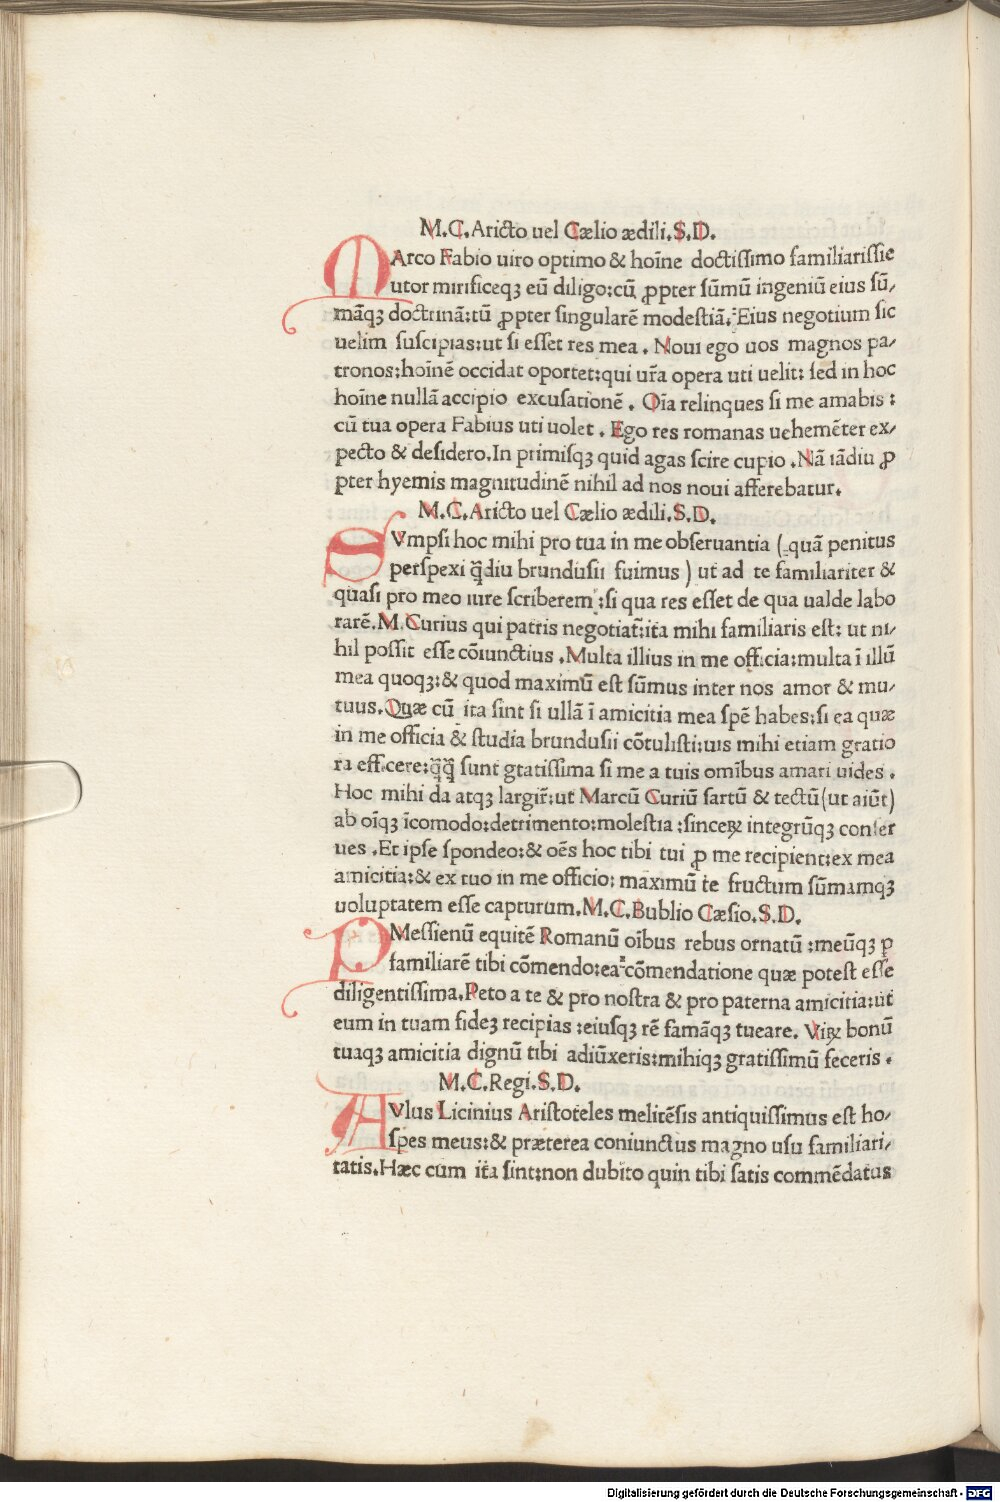 M.C. Aricto uel Cælio ædili.S.D.
MArco Fabio uiro optimo & hoīne doctiſſimo familiariſſie
utor mirificeqꝫ eū diligo:cū ꝓpter ſūmū ingeniū eius ſū/
māqꝫ doctrinā:tū ꝓpter ſingularē modeſtiā. Eius negotium ſic
uelim ſuſcipias:ut ſi eſſet res mea. Noui ego uos magnos pa/
tronos:hoīnē occidat oportet:qui ur̄a opera uti uelit: ſed in hoc
hoīne nullā accipio excuſationē. Oīa relinques ſi me amabis:
cū tua opera Fabius uti uolet. Ego res romanas uehemēter ex/
pecto & deſidero. In primiſqꝫ quid agas ſcire cupio. Nā iādiu ꝓ
pter hyemis magnitudinē nihil ad nos noui afferebatur.
M.C. Aricto uel Cælio ædili.S.D.
SVmpſi hoc mihi pro tua in me obſeruantia (quā penitus
perſpexi q̄diu brunduſii fuimus) ut ad te familiariter &
quaſi pro meo iure ſcriberem:ſi qua res eſſet de qua ualde labo
rarē.M.Curius qui patris negotiat̄:ita mihi familiaris eſt: ut ni/
hil poſſit eſſe cōiunctius. Multa illius in me officia:multa ī illū
mea quoqꝫ:& quod maximū eſt ſūmus inter nos amor & mu/
tuus. Quæ cū ita ſint ſi ullā ī amicitia mea ſpē habes:ſi ea quæ
in me officia & ſtudia brunduſii cōtuliſti:uis mihi etiam gratio
ra efficere:q̄q̄ ſunt gratiſſima ſi me a tuis omībus amari uides.
Hoc mihi da atqꝫ largir̄:ut Marcū Curiū ſartū & tectū(ut aiūt)
ab oīqꝫ īcomodo:detrimento:moleſtia:ſinceꝝ integrūqꝫ conſer
ues. Et ipſe ſpondeo:& oēs hoc tibi tui ꝓ me recipient:ex mea
amicitia:& ex tuo in me officio: maximū te fructum ſūmamqꝫ
uoluptatem eſſe capturum.M.C. Bublio Cæſio.S.D.
PMeſſienū equitē Romanū oībus rebus ornatū:meūqꝫ ꝑ
familiarē tibi cōmendo:ea cōmendatione quæ poteſt eſſe
diligentiſſima. Peto a te & pro noſtra & pro paterna amicitia:ut
eum in tuam fideꝫ recipias:eiuſqꝫ rē famāqꝫ tueare. Viꝝ bonū
tuaqꝫ amicitia dignū tibi adiūxeris:mihiqꝫ gratiſſimū feceris.
M.C. Regi.S.D.
AVlus Licinius Ariſtoteles melitēſis antiquiſſimus eſt ho/
ſpes meus:& præterea coniunctus magno uſu familiari/
tatis. Hæc cum ita ſint:non dubito quin tibi ſatis commēdatus
Digitalisierung gefördert durch die Deutsche Forschungsgemeinschaft - DFG